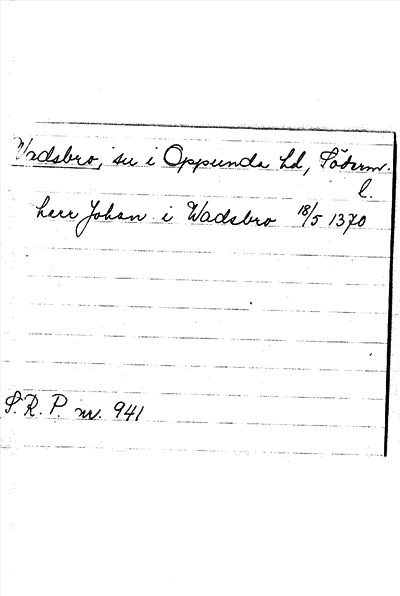 Vadsbro, sn i Oppunda hd, Söderm.
l.
herr Johan i Wadsbro 18/5 1370
S. R. P. nr. 941